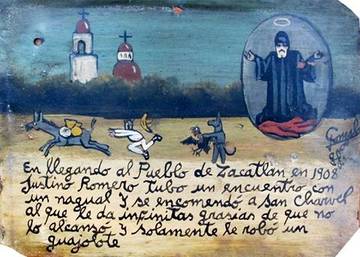 En llegando al Pueblo de Zacatlán en 1908
Justino Romero tubo un encuentro con
un nagual Y se encomendó a San Charvel
al que le da infinitas grasias de que no
lo alcansó y solamente le robó un
guajolote